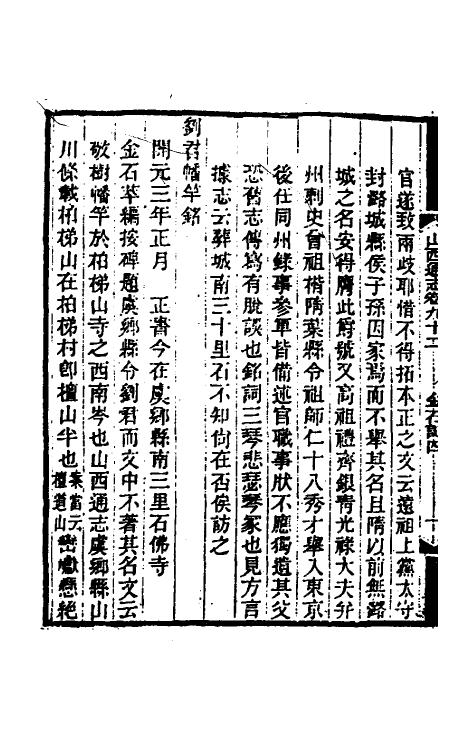 山西通志卷九十二 金石記四 十
官遂致兩歧耶惜不得拓本正之文云遠祖上黨太守
封潞城縣侯子孫因家焉而不舉其名且隋以前無潞
城之名安得膺此爵號又高祖禮齊銀青光祿大夫弁
州刺史曾祖楷隋葉縣令祖師仁十八秀才舉入東京
後仕同州錄事參軍皆備述官職事狀不應獨遺其父
恐舊志傳寫有脫誤也銘詞三琴悲瑟琴冢也見方言
據志云葬城南三十里石不知尚在否俟訪之
劉君幡竿銘
開元三年正月 正書今在虞鄉縣南三里石佛寺
金石萃編按碑題虞鄉縣令劉君而文中不著其名文云
敬樹幡竿於柏梯山寺之西南岑也山西通志虞鄉縣山
川條載柏梯山在柏梯村卽檀山半也案當云檀道山巒巘懸絶